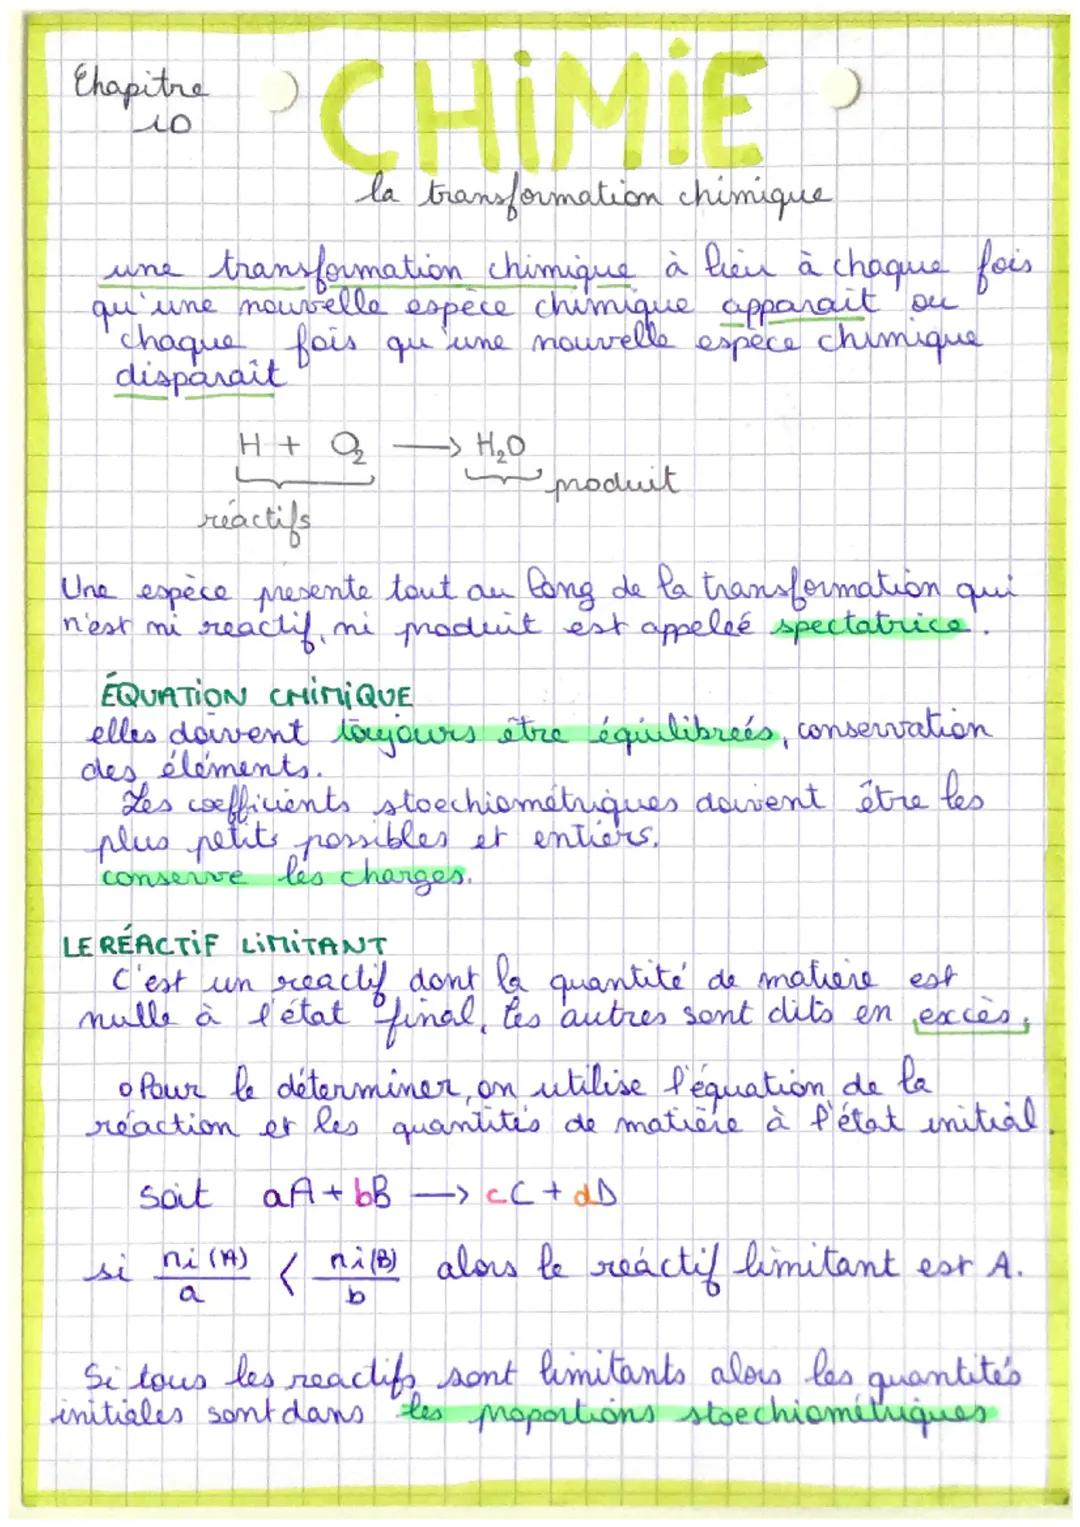 Chapitre
10
CHiMiE
la transformation chimique
une transformation chimique à lieu à chaque fois
qu'une nouvelle espèce chimique apparait ou
chaque fois qu'une nouvelle espèce chimique
disparaît
H + O₂ → H₂O
produit
réactifs
Une espèce présente tout au long de la transformation qui
n'est ni reactif, ni produit est appeleé spectatrice.
ÉQUATION CHIMIQUE
elles doivent toujours être équilibreés, conservation
des éléments.
Les coefficients stoechiométriques doivent être les
plus petits possibles et entiers.
conserve les charges.
LE RÉACTIF LIMITANT
C'est un reactif dont la quantité de matière est
nulle à l'état final, les autres sont dits en excès.
o Pour le déterminer, on utilise l'équation de la
réaction et les quantités de matière à l'état initial.
Soit aA + bB → cC + dD
si ni(A)/a < ni(B)/b alors le réactif limitant est A.
Si tous les reactifs sont limitants alors les quantités
initiales sont dans les proportions stoechiométriques